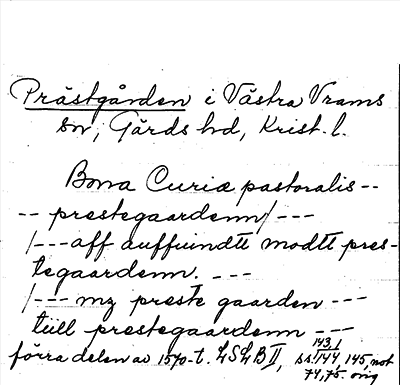 Prästgården i Västra Vrams
sn, Gärds hd, Krist. l.
Bona Curiæ pastoralis --
-- prestegaardenn/ ---
/--- aff auffuindtt modtt pres-
tegaardenn. ---
/--- mz preste gaarden ---
tiill prestegaardenn ---
förra delen av 1570-t. LSLB II, ss. 143, 144, 145, not
74, 75. orig